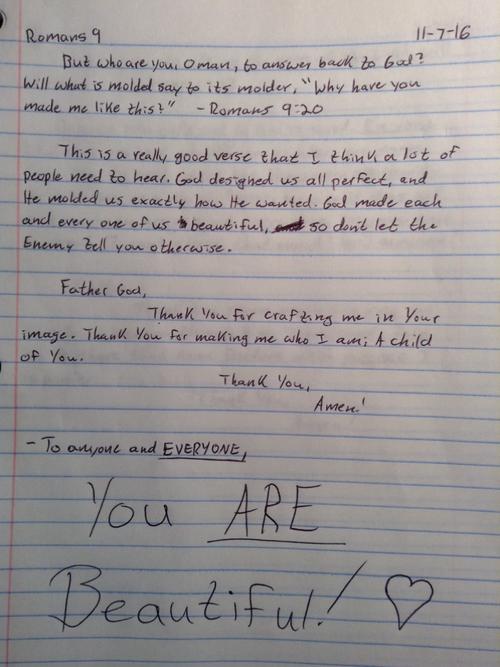 Romans 9 11-7-16
But who are you, O man, to answer back to God?
Will what is molded say to its molder, "Why have you
made me like this?" - Romans 9:20
This is a really good verse that I think a lot of
people need to hear. God designed us all perfect, and
He molded us exactly how He wanted. God made each
and every one of us beautiful, so don't let the
Enemy tell you otherwise.
Father God,
Thank You for crafting me in Your
image. Thank You for making me who I am; A child
of You.
Thank You,
Amen!
- To anyone and EVERYONE,
You ARE
Beautiful! ♡